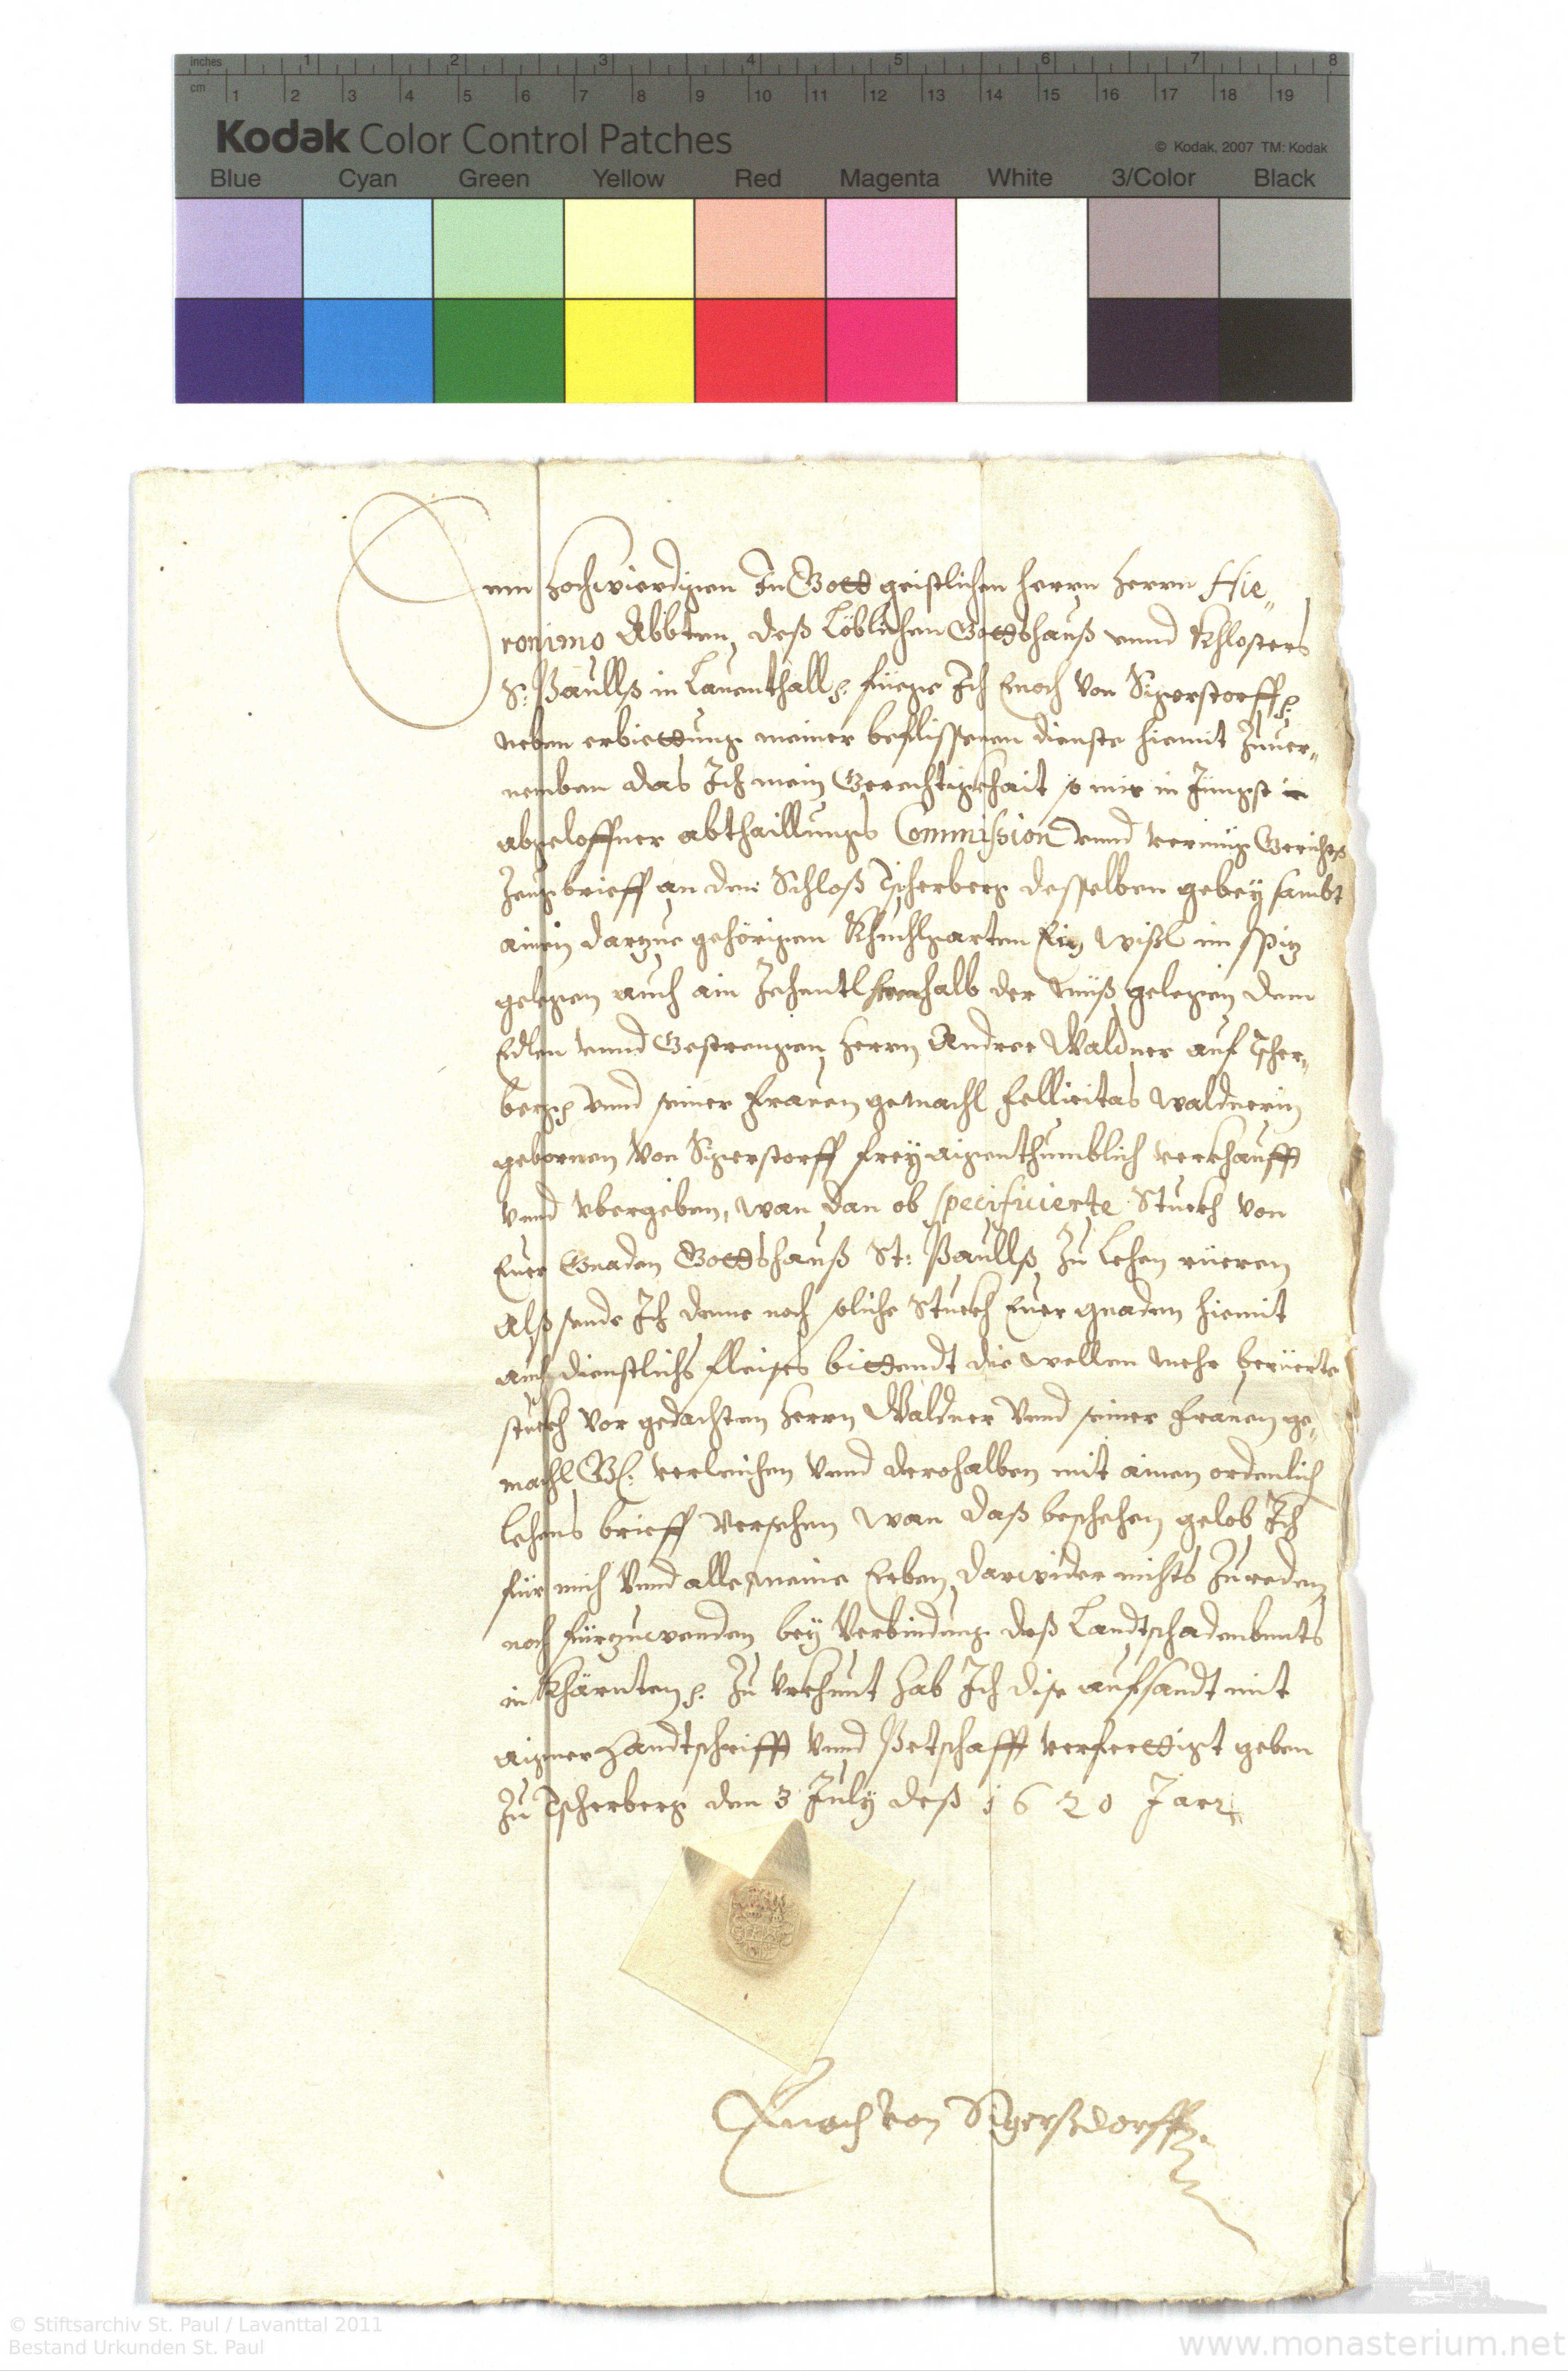 inches 1 2 3 4 5 6 7 8
cm 1 2 3 4 5 6 7 8 9 10 11 12 13 14 15 16 17 18 19
Kodak Color Control Patches © Kodak, 2007 TM: Kodak
Blue Cyan Green Yellow Red Magenta White 3/Color Black
Dem Hochwierdigen In Gott geistlichen herrn Herrn Hie„
ronimo Abbten, deß Löblichen Gottshauß vnnd Khlosters
S: Paullß in Lauenthall füege Ich Enoch Von Sigerstorff
neben erbiettung meiner beflissenen dienste hiemit Zuuer„
nemben das Ich mein Gerechtigkhait so mir in Jüngst
abgeloffner abthaillungs Commission vnnd vermüg Gerichts
Zeugbrieff an dem Schloß Tscherberg desselben gebey sambt
ainen darzue gehörigen Khuchlgarten Ein wißl im spiz
gelegen auch ain Zehentl halb der gelegen dem
Edlen vnnd Gestrengen Herrn Andree Waldner auf Tscher„
berg vnnd seiner Frauen gemachl Fellicitas Waldnerin
gebornen Von Sigerstorff frey aigenthumblich verkhaufft
vnnd vbergeben, wan dan ob specificierte Stuckh von
Euer Gnaden Gottshauß St: Paullß Zu Lehen rüeren
Alß sende Ich deme nach soliche Stuckh Euer gnaden hiemit
auf dienstlichs fleises bittendt die wellen mehr berüerte
stuckh vor gedachten Herrn Waldner Vnnd seiner Frauen ge„
machl verleichen Vnnd derohalben mit ainen ordenlich
Lehens brieff Versehen wan daß beschehen gelob Ich
für mich Vnnd alle meine Erben, darwider nichts Zu reden
noch fürzuwenden bey Verbindung deß Landtschadenbunts
in Khärnten Zu Vrkhunt hab Ich dise aufsandt mit
aigner Handtschrifft Vnnd Petschafft verferttigt geben
Zu Tscherberg den 3 July deß 1620 Jarr
Enoch von Sigerßdorff
© Stiftsarchiv St. Paul / Lavanttal 2011
Bestand Urkunden St. Paul
www.monasterium.net